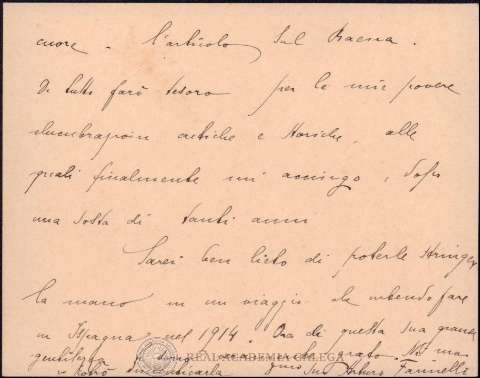 cuore. l'articolo sul Baena.
Di tutto farò tesoro per le mie povere
elucubrazioni critiche e storiche, alle
quali finalmente mi accingo, dopo
una sosta di tanti anni
Sarei ben lieto di poterle stringer
la mano in un viaggio che intendo fare
in Ispagna nel 1914. Ora di questa sua grande
gentilezza grato. Nè ma
potrò dimenticarla Suo Arturo Farinelli
REAL ACADEMIA GALEGA